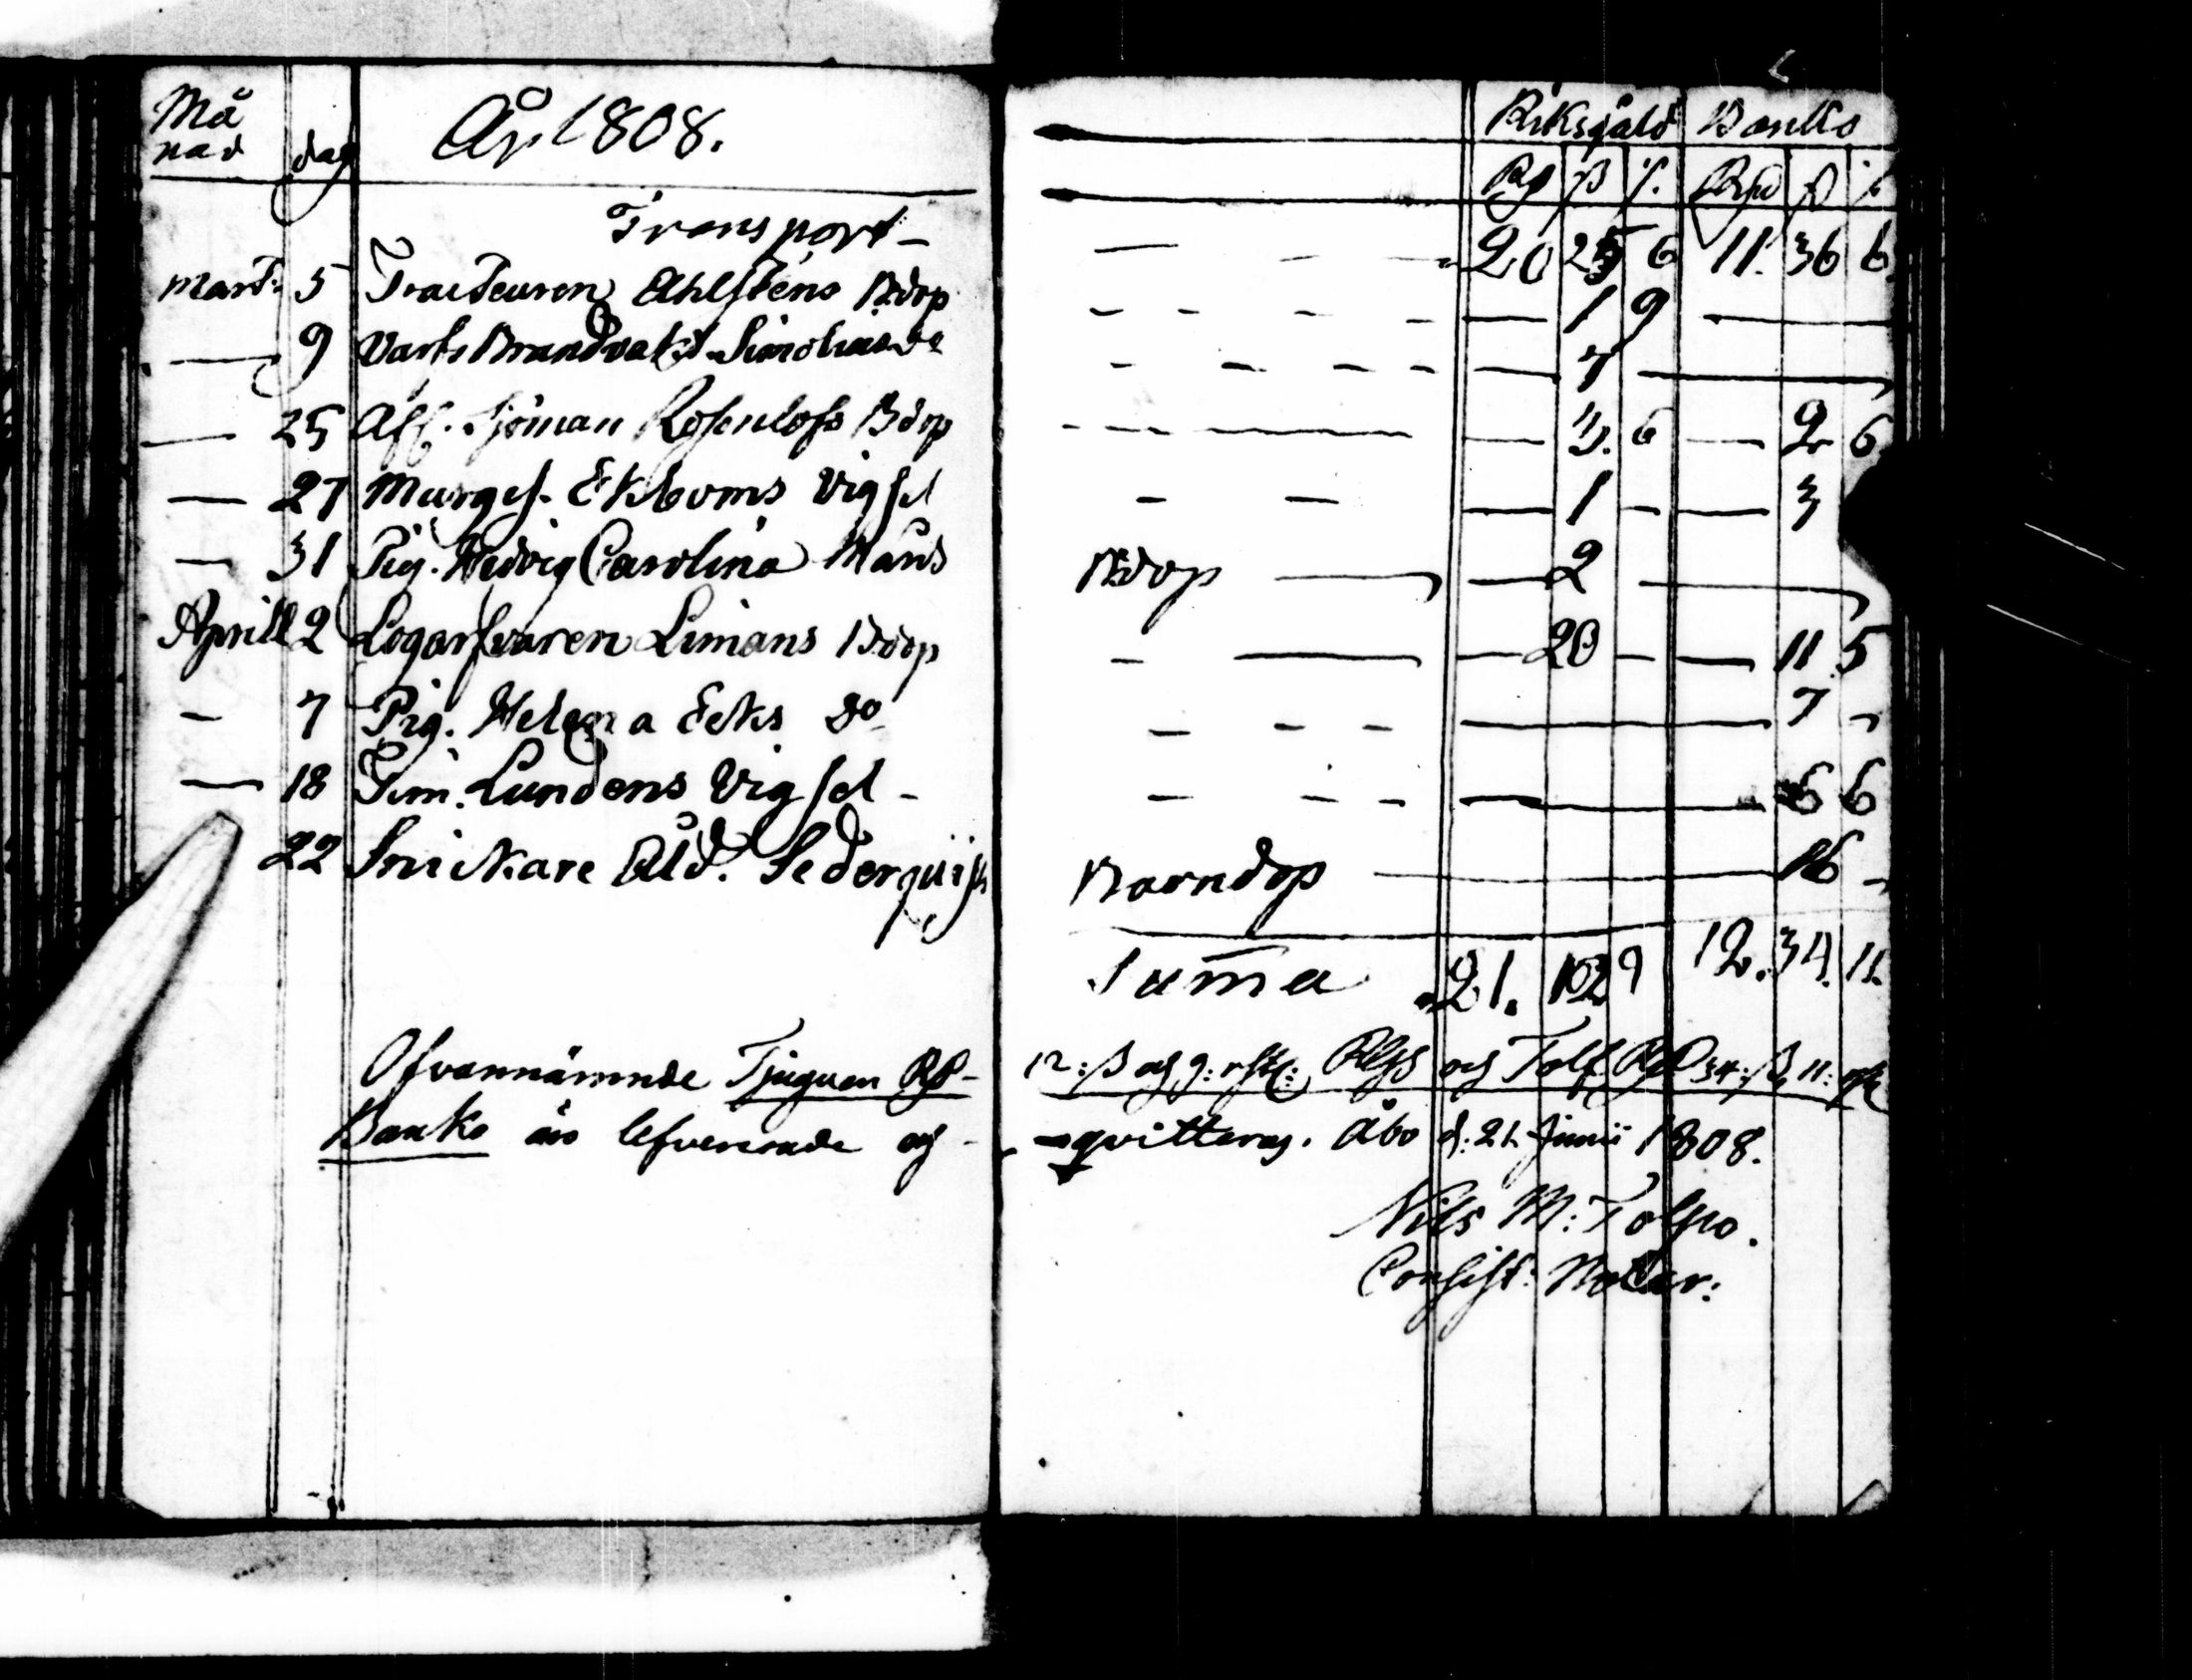 Må
nad dag År 1808. Riksgäld Banko
Rd ß r. Rd ß r
Transport - 20 25 6 11. 36 6.
Mart: 5 Tracteuren Ahlsténs Bdop 1 9
9 Varfs Brandvakt 7
25 Aff. Sjöman Rosenlöfs Bdop 3. 6 2 6
27 Murges. Ekboms Vigsel 1 3
31 Pig. Hedvig Carolina Måns Bdop 2
Aprill 2 Logarfvaren Limans Bdop 20 11 5
7 Pig. Helena Ecks do 7
18 Tim. Lundens Vigsel - 6 6
22 Snickare Åld. Sederquist Barndop 16
Suma 21. 12 9 12. 34. 11.
Ofvannämnde Tjuguen Rd 12: ß och 9: rst: Rgs och Tolf Rd 34: ß, 11: rst
Banko äro lefvererade och qvitteras. Åbo d: 21. Junii 1808.
Nils M: Tolpo.
Consist: Notar: